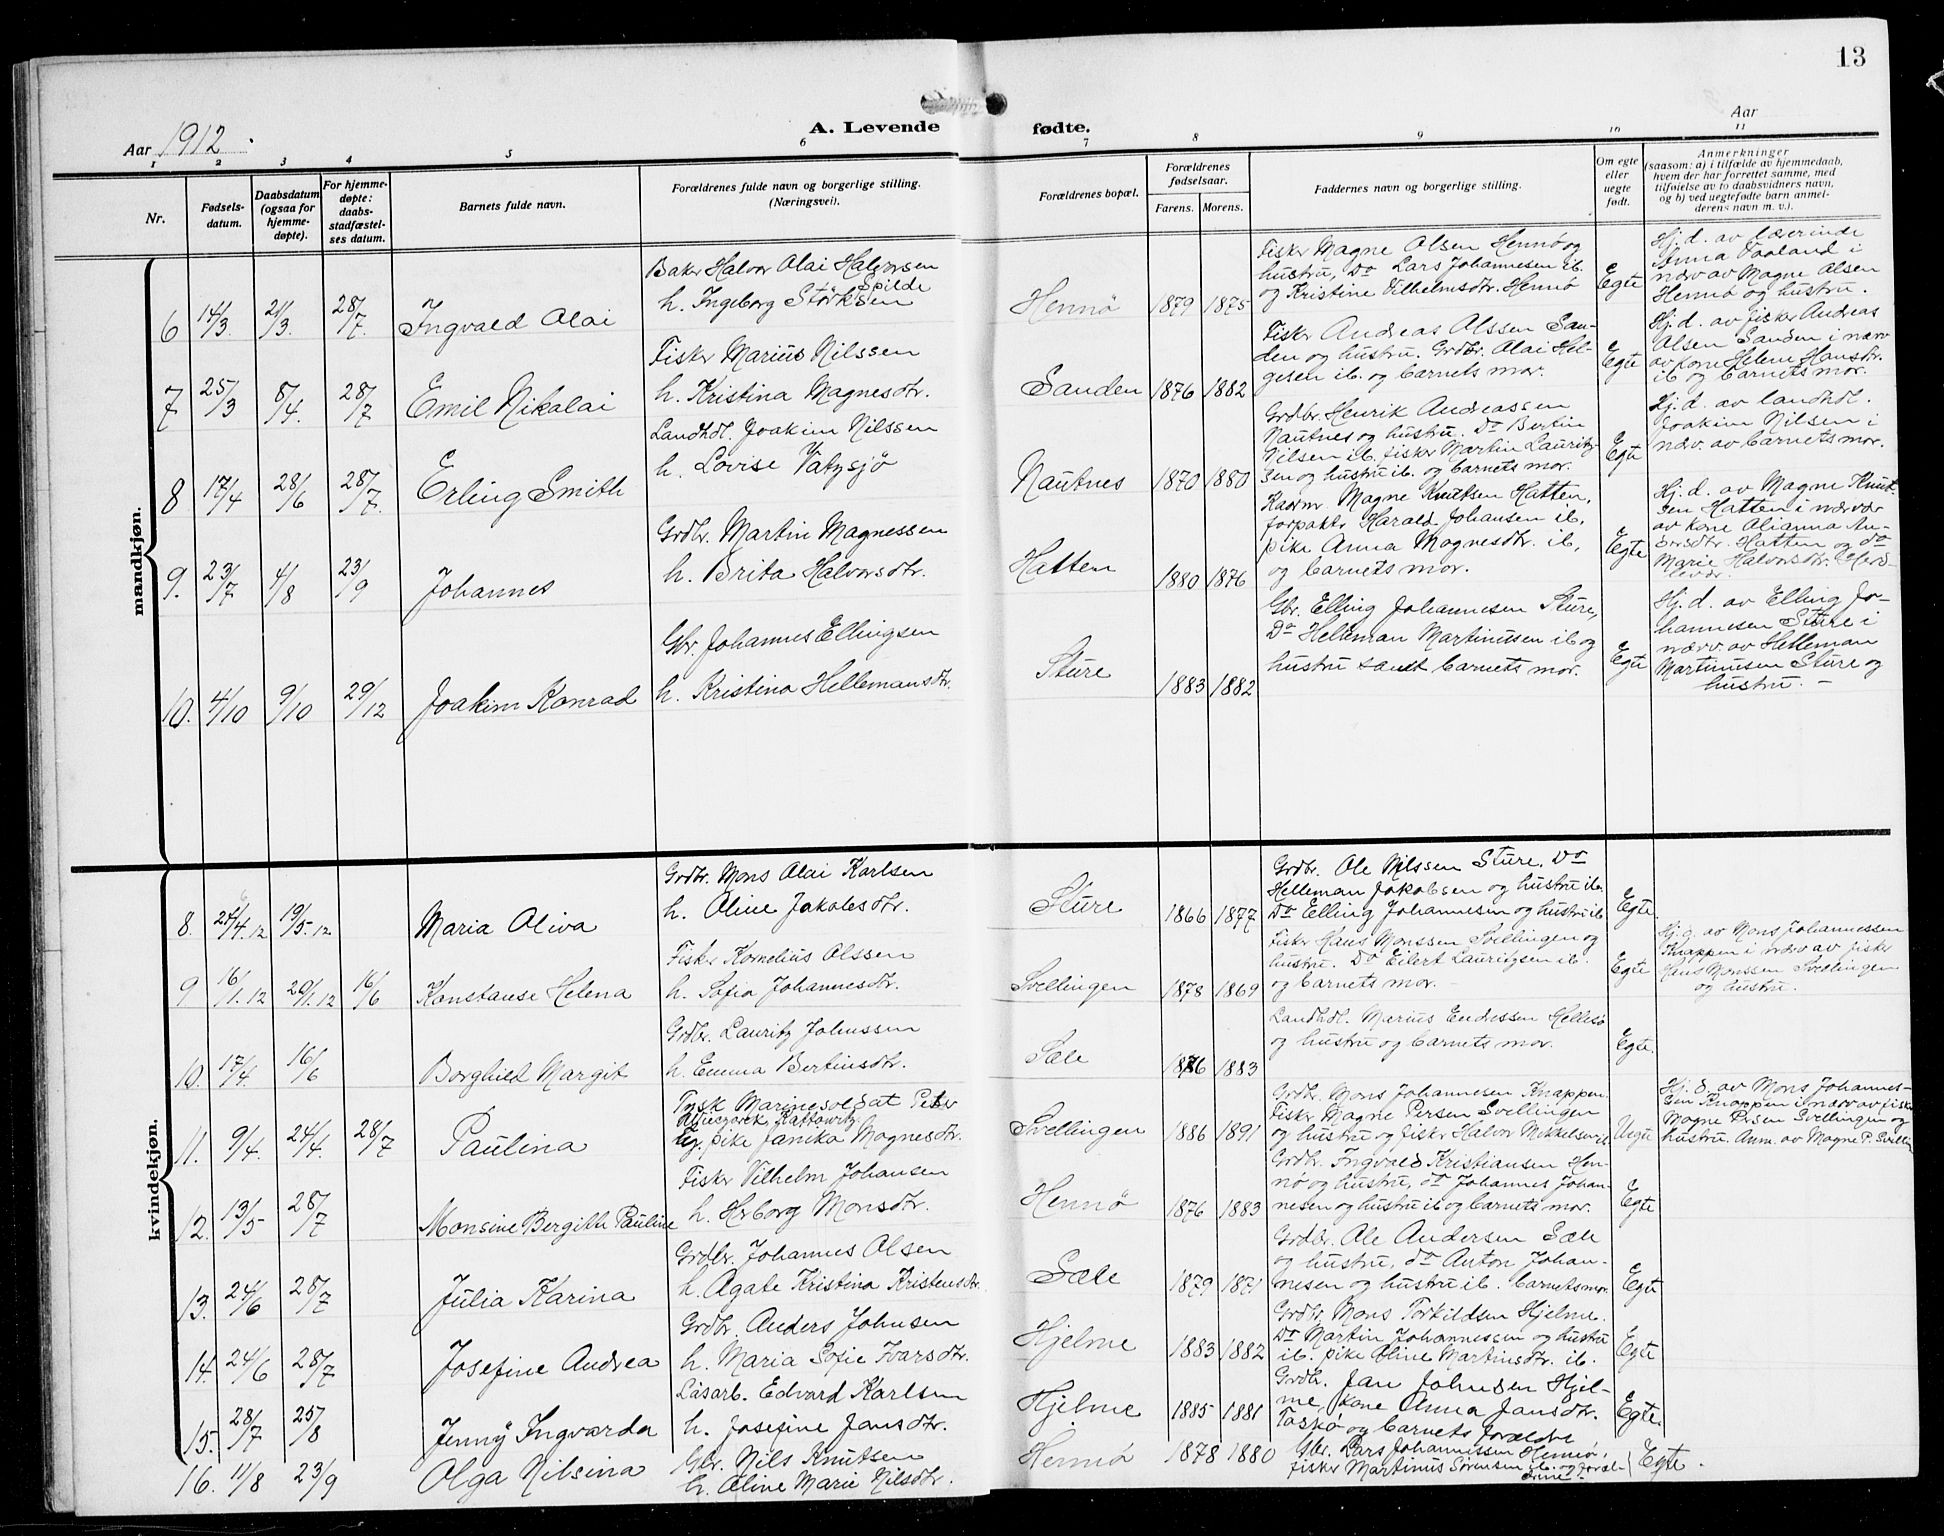 13
Aar 1912.
A. Levende fødte.
Aar
1 2 3 4 5 6 7 8 9 10 11
Nr.
Fødsels-
datum.
Daabsdatum
(ogsaa for
hjemme-
døpte).
For hjemme-
døpte:
daabs-
stadfæstel-
ses datum.
Barnets fulde navn.
Forældrenes fulde navn og borgerlige stilling.
(Næringsvei).
Forældrenes bopæl.
Forældrenes
fødselsaar.
Farens. Morens.
Faddernes navn og borgerlige stilling.
Om egte
eller
uegte
født.
Anmerkninger
(saasom: a) i tilfælde av hjemmedaab,
hvem der har forrettet samme, med
tilføielse av to daabsvidners navn,
og b) ved uegtefødte barn anmel-
derens navn m. v.).
mandkjøn.
6 14/3 21/3. 28/7. Ingvald Olai
Baker Halvor Olai Halvorsen
Spilde
h. Ingeborg Størksen
Hennø 1879 1875
Fisker Magne Olsen Hennø og
hustru, Do Lars Johannesen ib.
og Kristine Vilhelmsdtr. Hennø
Egte
Hj. d. av lærerinde
Anna Vaaland i
nærv av Magne Olsen
Hennø og hustru.
7 25/3 8/4. 28/7 Emil Nikolai
Fisker Marius Nilssen
h. Kristina Magnesdtr.
Sanden 1876 1882
Fisker Andreas Olssen San-
den og hustru. Grdbr. Olai Hel-
gesen ib. og barnets mor.
Egte
Hj. d. av fisker Andreas
Olsen Sanden i nærv
av kone Helene Hansdtr.
ib og barnets mor.
8 17/4 28/6 28/7. Erling Smith
Landhdl. Joakim Nilssen
h. Lovise Vatzsjø
Nautnes 1870 1880
Grdbr. Henrik Andreassen
Nautnes og hustru. Do Bertin
Nilsen ib. fisker Martin Lauritz-
sen og hustru ib. og barnets mor.
Egte
Hj. d. av landhdl.
Joakim Nilsen i
nærv. av barnets mor.
9. 23/7 4/8 23/9 Johannes
Grdbr. Martin Magnessen
h. Brita Halvorsdtr.
Hatten 1880 1876
Magne Knutsen Hatten,
forpakter Harald Johansen ib,
pike Anna Magnesdtr. ib,
og barnets mor.
Egte
Hj. d. av Magne Knut-
sen Hatten i nærvær
av kone Olianna An-
dersdtr. Hatten og do
Marie Halvorsdtr.
10. 4/10 9/10 29/12 Joakim Konrad
Gbr. Johannes Ellingsen
h. Kristina Hellemansdtr.
Sture 1883 1882
Gbr. Elling Johannesen Sture,
Do Helleman Martinusen ib og
hustru samt barnets mor.
Egte
Hj. d. av Elling Jo-
hannesen Sture i
nærv av Helleman
Martinusen Sture og
hustru. -
kvindekjøn.
8. 24/4.12 19/5.12 Maria Oliva
Grdbr. Mons Olai Karlsen
h. Oline Jakobsdtr.
Sture 1866 1877
Grdbr. Ole Nilssen Sture. Do
Helleman Jakobsen og hustru ib.
Do Elling Johannesen og hustru ib
Egte.
9 16/1.12 20/1.12 16/6 Konstanse Helena
Fisker Kornelius Olssen
h. Sofia Johannesdtr.
Svellingen 1878 1869
Fisker Hans Monssen Svellingen og
hustru. Do Eilert Lauritzsen ib.
og barnets mor.
Egte
Hj. d. av Mons Johannessen
Knappen i nærv av fisker
Hans Monssen Svellingen
og hustru.
10. 17/4. 16/6 Borghild Margit
Grdbr. Lauritz Johnssen
h. Emma Bertinsdtr.
Sæle 1876 1883
Landhdl. Marius Endressen Hellesø
og hustru og barnets mor.
Egte.
11. 9/4. 24/4. 28/7 Paulina
Tysk Marinesoldat Peter
Kattowitz
Ug. pike Janika Magnesdtr.
Svellingen 1886 1891
Grdbr. Mons Johannesen Knappen.
Fisker Magne Persen Svellingen
og hustru og fisker Halvor Mikkelsen ib
Uegte
Hj. d. av Mons Johannes-
sen Knappen i nærv av fisker
Magne Persen Svellingen og
hustru. Anm. av Magne P. Svelling
12. 13/5 28/7 Monsine Bergitte Pauline
Fisker Vilhelm Johansen
h. Herborg Monsdtr.
Hennø 1876 1883
Grdbr. Ingvald Kristiansen Hen-
nø og hustru, do Johannes Johan-
nesen og hustru ib og barnets mor.
Egte
13. 24/6 28/7 Julia Karina
Grdbr. Johannes Olsen
h. Agate Kristina Kristensdtr.
Sæle 1879 1871
Grdbr. Ole Andersen Sæle
og hustru, do Anton Johan-
nesen og hustru ib. barnets mor.
Egte
14. 24/6 28/7 Josefine Andrea
Grdbr. Anders Johnsen
h. Maria Sofie Ivarsdtr.
Hjelme 1883 1882
Grdbr. Mons Torkildsen Hjelme.
Do Martin Johannessen og hustru
ib. pike Oline Martinsdtr. ib.
Egte
15. 28/7 25/8 Jenny Ingvarda
Løsarb. Edvard Karlsen
h. Josefine Jansdtr.
Hjelme 1885 1881
Grdbr. Jan Johnsen Hjel-
me, kone Anna Jansdtr.
Toskø og barnets forældre
Egte.
16. 11/8 23/9 Olga Nilsina
Gbr. Nils Knutsen
h. Oline Marie Nilsdtr.
Hennø 1878 1880
Gbr. Lars Johannessen Hennø,
fisker Martinus Sørensen ib. og foræl-
drene
Egte.